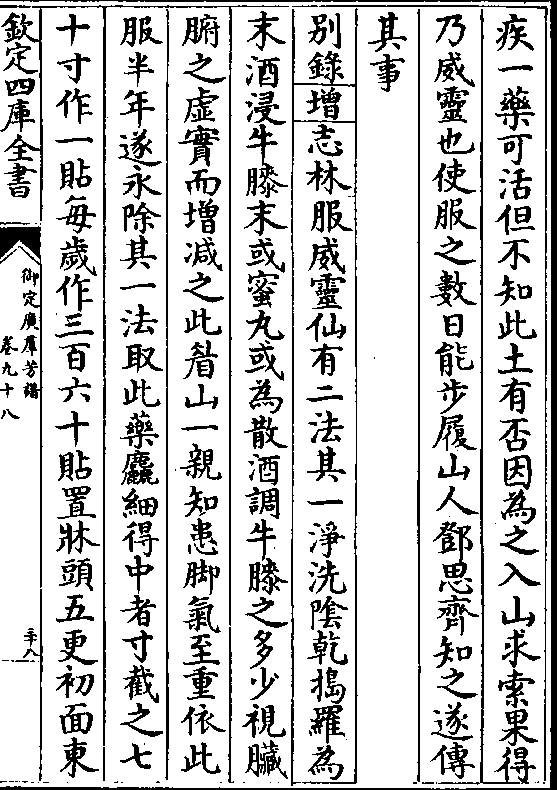 疾一藥可活但不知此土有否因為之入山求索果得
乃威靈也使服之數日能步履山人鄧思齊知之遂傳
其事
別錄增志林服威靈仙有二法其一淨洗陰乾搗羅為
末酒浸牛膝末或蜜丸或為散酒調牛膝之多少視臟
腑之虛實而增減之此眉山一親知患脚氣至重依此
服半年遂永除其一法取此藥麤細得中者寸截之七
十寸作一貼每歲作三百六十貼置牀頭五更初面東
欽定四庫全書
御定廣羣芳譜
卷九十八